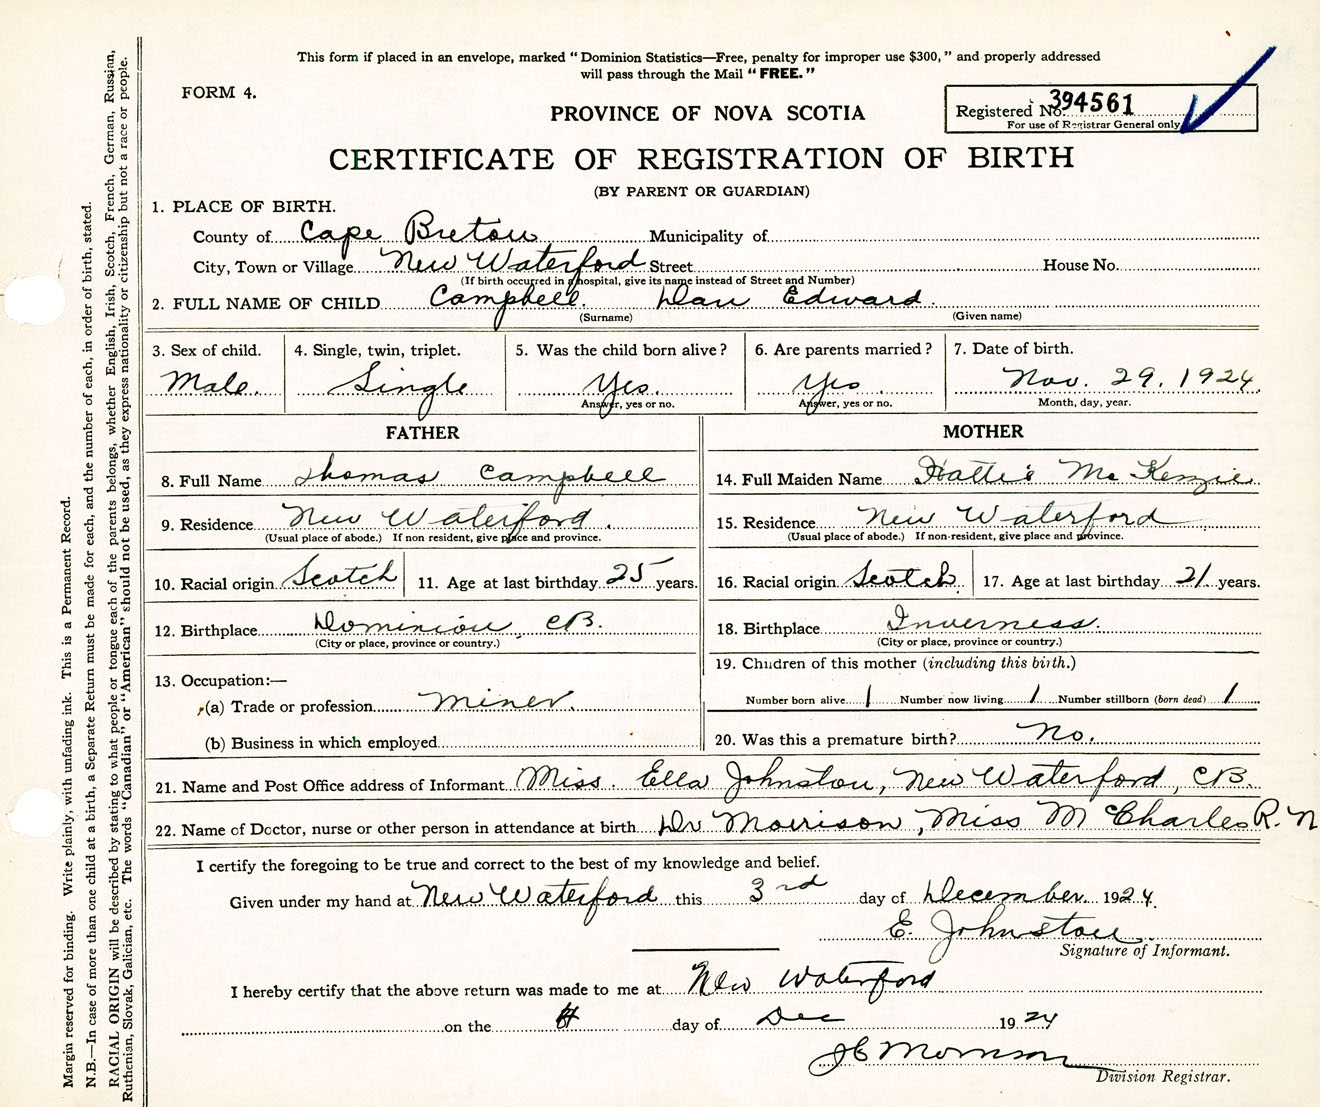 This form if placed in an envelope, marked "Dominion Statistics—Free, penalty for improper use $300," and properly addressed
will pass through the Mail "FREE."
FORM 4.
PROVINCE OF NOVA SCOTIA
Registered No. 394561
For use of Registrar General only
CERTIFICATE OF REGISTRATION OF BIRTH
(BY PARENT OR GUARDIAN)
1. PLACE OF BIRTH.
County of Cape Breton Municipality of
City, Town or Village New Waterford Street House No.
(If birth occurred in a hospital, give its name instead of Street and Number)
2. FULL NAME OF CHILD Campbell Dan Edward
(Surname) (Given name)
3. Sex of child. 4. Single, twin, triplet. 5. Was the child born alive? 6. Are parents married? 7. Date of birth.
Male. Single Yes. Yes. Nov. 29. 1924.
Answer, yes or no. Answer, yes or no. Month, day, year.
FATHER MOTHER
8. Full Name Thomas Campbell 14. Full Maiden Name Hattie McKenzie
9. Residence New Waterford. 15. Residence New Waterford
(Usual place of abode.) If non resident, give place and province. (Usual place of abode.) If non-resident, give place and province.
10. Racial origin Scotch 11. Age at last birthday 25 years. 16. Racial origin Scotch. 17. Age at last birthday 21 years.
12. Birthplace Dominion, CB. 18. Birthplace Inverness.
(City or place, province or country.) (City or place, province or country.)
19. Children of this mother (including this birth.)
13. Occupation:—
Number born alive 1 Number now living 1 Number stillborn (born dead) 1
(a) Trade or profession miner.
(b) Business in which employed 20. Was this a premature birth? No.
21. Name and Post Office address of Informant Miss. Ella Johnston, New Waterford, CB.
22. Name of Doctor, nurse or other person in attendance at birth Dr Morrison, Miss McCharles R.N
I certify the foregoing to be true and correct to the best of my knowledge and belief.
Given under my hand at New Waterford this 3rd day of December. 1924.
E. Johnston.
Signature of Informant.
I hereby certify that the above return was made to me at New Waterford
on the day of Dec 1924
Morrison
Division Registrar.
Margin reserved for binding. Write plainly, with unfading ink. This is a Permanent Record.
N.B.—In case of more than one child at a birth, a Separate Return must be made for each, and the number of each, in order of birth, stated.
RACIAL ORIGIN will be described by stating to what people or tongue each of the parents belongs, whether English, Irish, Scotch, French, German, Russian,
Ruthenian, Slovak, Galician, etc. The words "Canadian" or "American" should not be used, as they express nationality or citizenship but not a race or people.